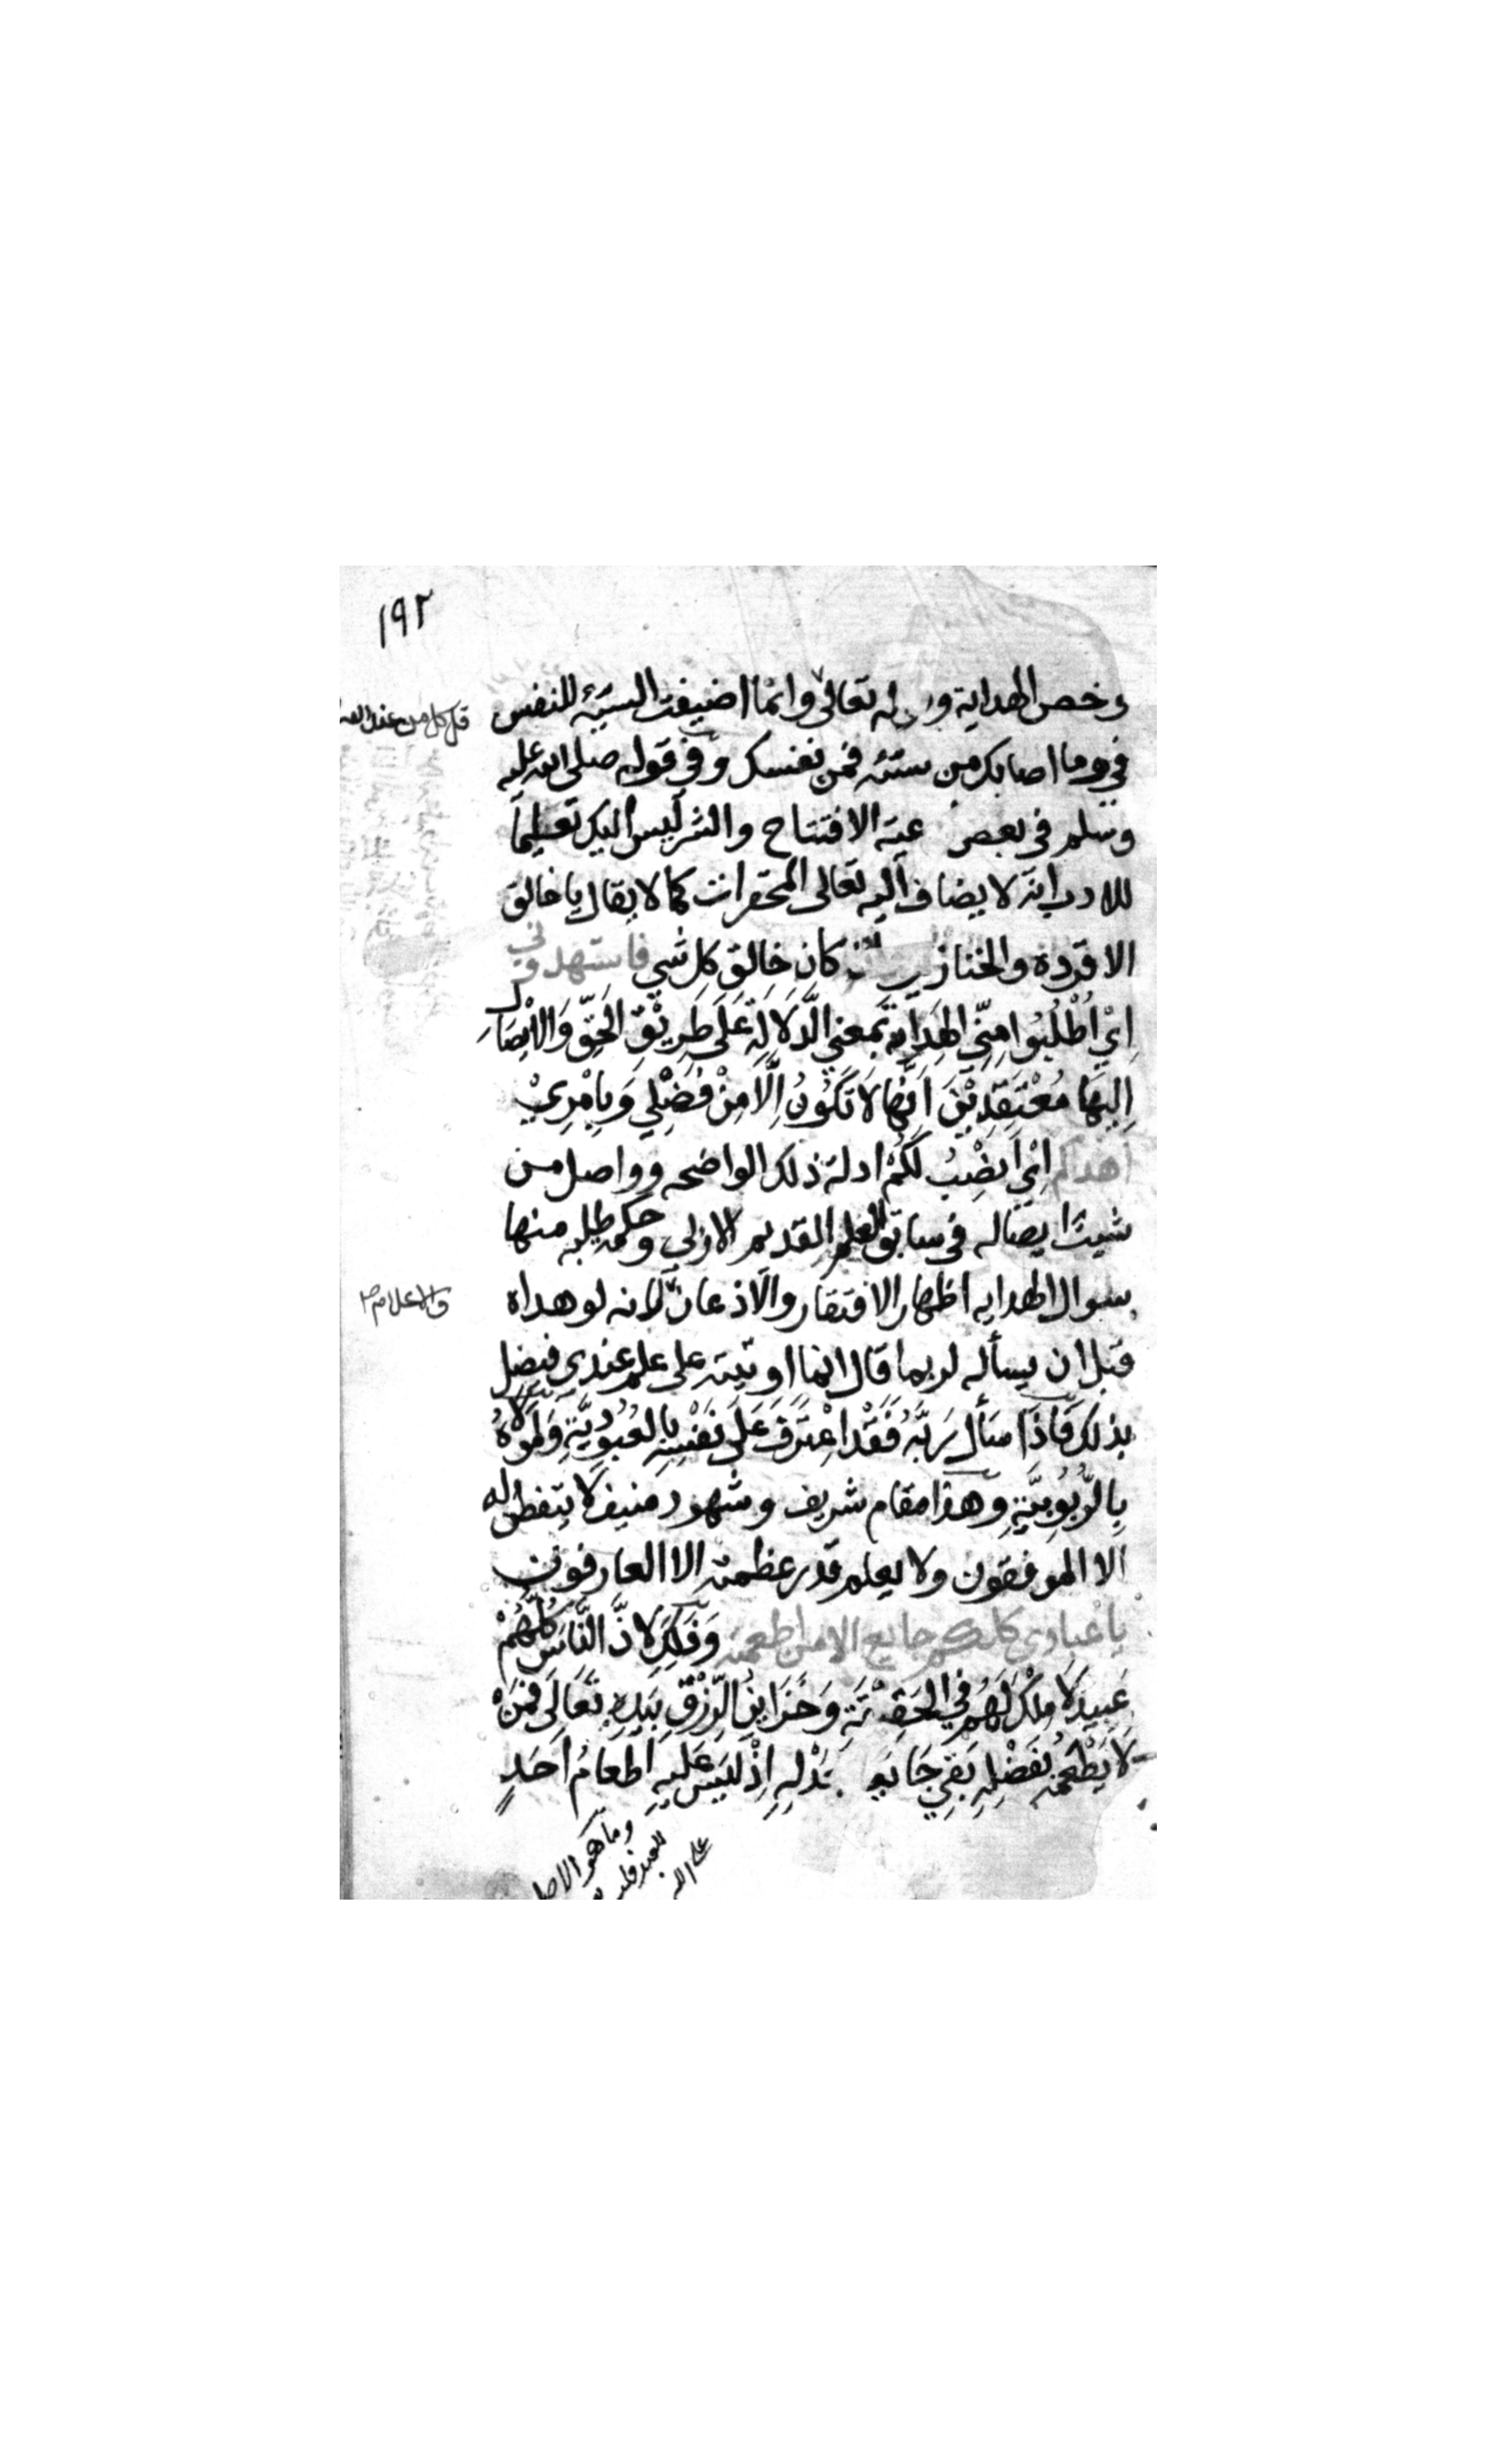 ١٩٢
وخص الهداية و له تعالى وانما اضيفت السيئة للنفس
قل كل من عند الله
في وما اصابك من سيئة فمن نفسك وفي قوله صلى الله عليه
وسلم في بعض عية الافتتاح والشر ليس اليك تعليما
للادب انه لا يضاف اليه تعالى المحقرات كما لا يقال يا خالق
الاقردة والخنازير كان خالق كل شي فاستهدوني
اِيْ اُطْلُبُوا مِنِّي الهِدَايَة بمَعنِي الدَّلَالَةِ عَلَى طَرِيْقِ الحَقِّ وَالاِيْصَالِ
اِليهَا مُعْتَقِدِيْنَ اَنَّهَا لَا تَكُوْنُ اِلَّا مِنْ فَضْلِي وَبِاَمْرِيْ
اهدكم اِيْ اَنْصِبُ لَكُمْ ادلة ذلك الواضحه وواصل من
شيت ايصاله في سابق العلم القديم الازلي وحكمة طلبه منها
سوال الهدايه اظهار الافتقار والاذعان لانه لو هداه
والاعلام صح
قبل ان يسأله لربما قال انما اوتيته على علم عندي فيضل
بذلك فَاِذَا سَأَلَ رَبَّهُ فَقَدْ اِعْتَرَفَ عَلَى نَفْسِهِ بِالعُبُودِيَّةِ وَلِمَوْلَاهُ
بِالرُّبُوبِيَّةِ وهذا مقام شريف وشهود منيف لا يتفطن له
الا الموفقون ولا يعلم قدر عظمته الا العارفون
يا عبادي كلكم جايع الا من اطعمته وَذَلِكَ لِاَنَّ النَّاسَ كُلَّهُمْ
عَبِيدٌ لَا مِلْكَ لَهُمْ فِي الحَقِيْقَةِ وَخَزَايِنُ الرِّزْقِ بِيَدِهِ تَعَالَى فَمَنْ
لَا يُطْعِمْهُ بِفَضْلِهِ بَقِيَ جَايع بعَدْلِهِ اِذْ لَيسَ عَلَيهِ اِطعَامُ اَحَدٍ